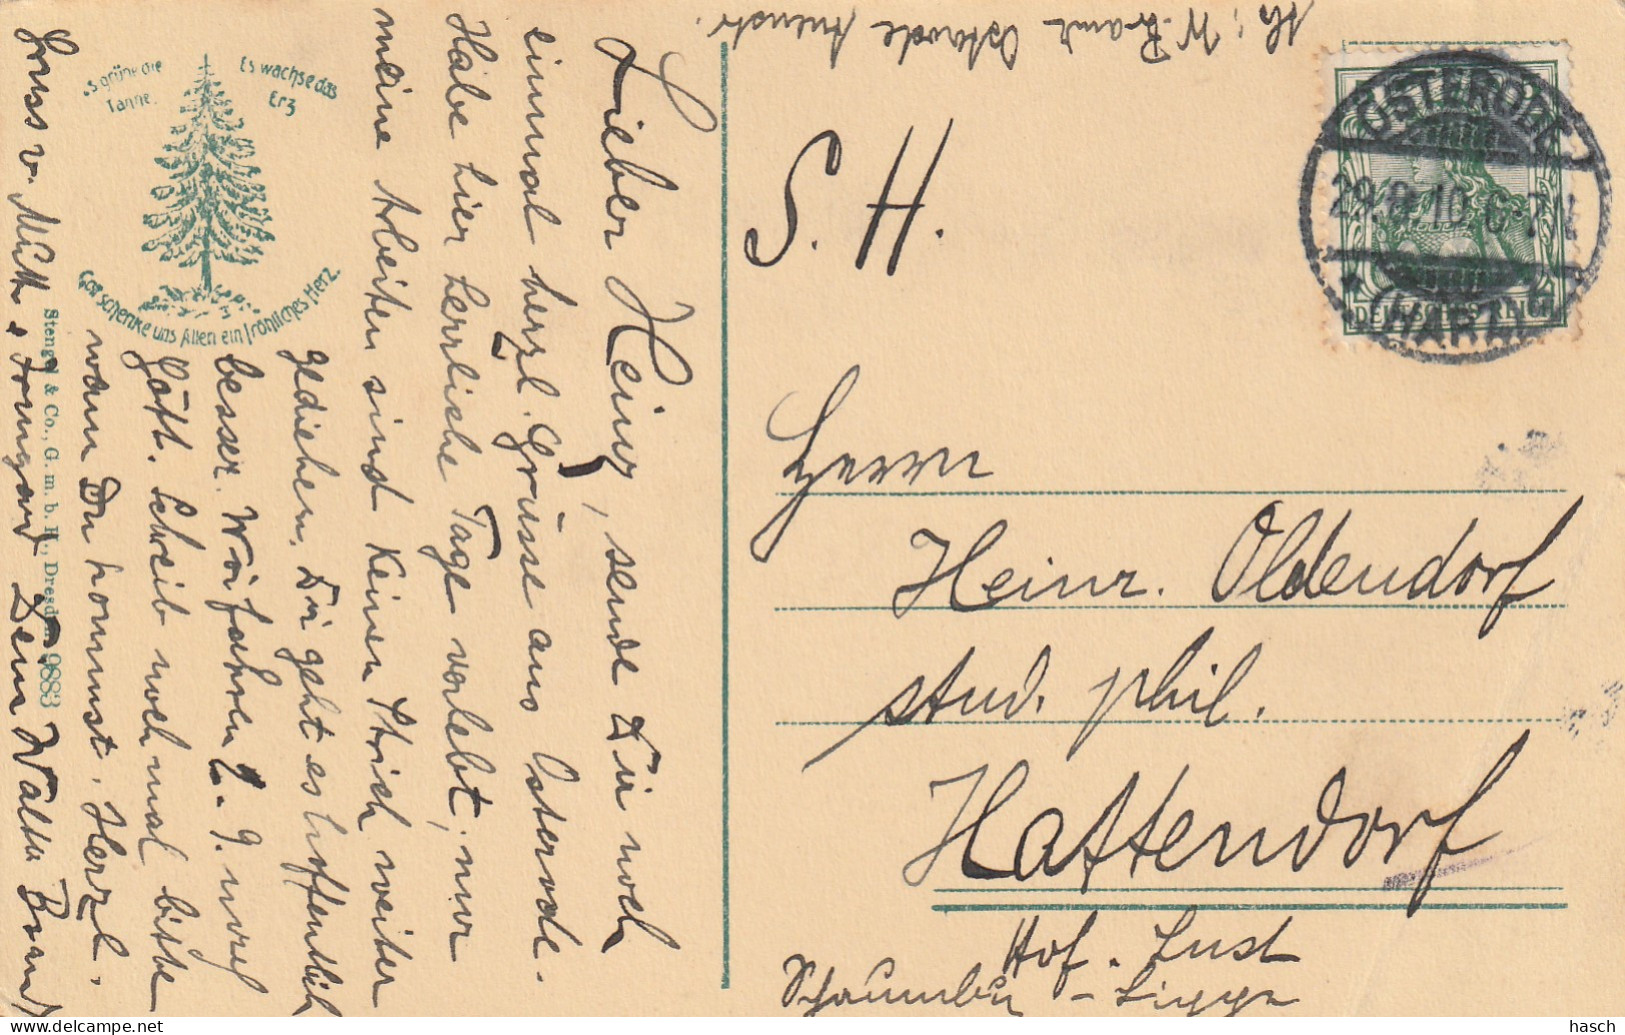 Abs: W. Brandt Osterode
S. H.
OSTERODE
29.8.10. 6-7 N
* (HARZ) *
DEUTSCHES REICH
Es grüne die Tanne.
Es wachse das Erz
Gott schenke uns Allen ein fröhliches Herz.
Lieber Heinz, sende Dir noch
einmal herzl. Grüsse aus Osterode.
Habe hier herrliche Tage verlebt, nur
meine Arbeiten sind keinen Strich weiter
gediehen. Dir geht es hoffentlich
besser. Wir fahren 2. 9. nach
Gött. Schreib noch mal bitte
wann Du kommst. Herzl.
Gruss v. Mutti & Irmgard Dein Walter Brandt
Stengel & Co., G. m. b. H., Dresden 49883
Herrn
Heinr. Oldendorf
stud. phil.
Hattendorf
Hof. Lust
Schaumburg - Lippe
hasch